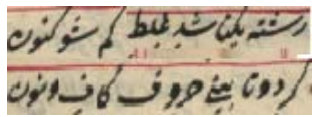 رشته یکتا شد غلط کم شو کنون
کر دوتا بینی حروف کاف و نون